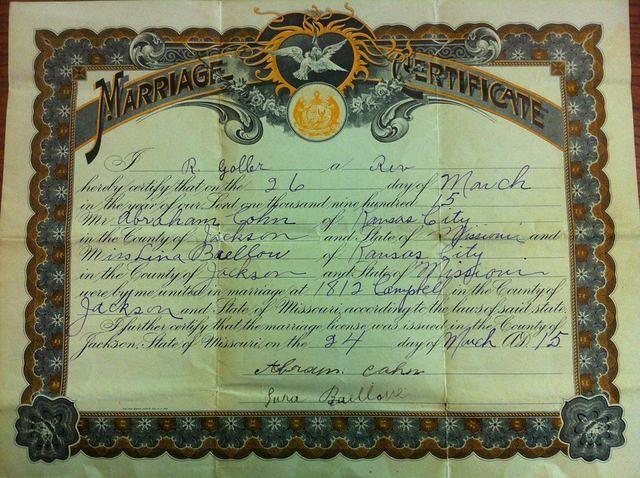 MARRIAGE CERTIFICATE
I R. Goller a Rev
hereby certify that on the 26 day of March
in the year of our Lord one thousand nine hundred 15
Mr Abraham Cohn of Kansas City
in the County of Jackson and State of Missouri and
Miss Lina Baellow of Kansas City
in the County of Jackson and State of Missouri
were by me united in marriage at 1812 Campbell in the County of
Jackson and State of Missouri, according to the laws of said state.
I further certify that the marriage license was issued in the County of
Jackson, State of Missouri, on the 24 day of March A.D. 15
Abram Cahn
Baellove